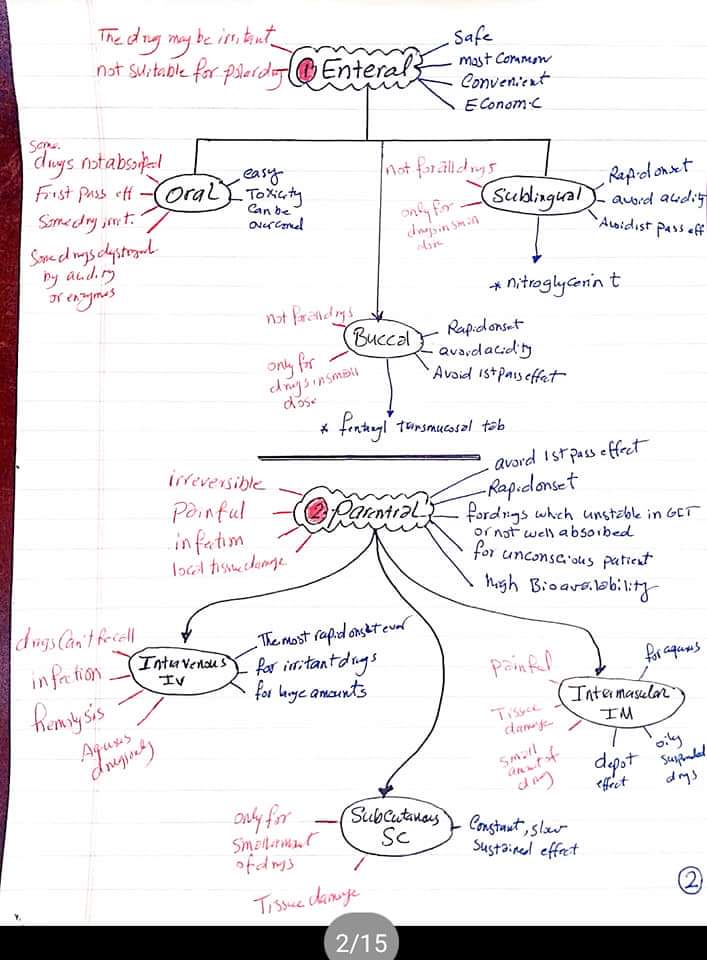 The drug may be irritant
not suitable for polar drug
① Enteral
Safe
most Common
Convenient
Economic
Some
drugs not absorbed
First pass eff
Some drg irrit.
Some drugs destroyed
by acidity
or enzymes
Oral
easy
Toxicity
Can be
overcomed
not for all drys
only for
drugs in small
dose
Sublingual
Rapid onset
avoid acidity
Avoid 1st pass eff
* nitroglycerin t
not for all drgs
only for
drugs in small
dose
Buccal
Rapid onset
avoid acidity
Avoid 1st pass effect
* fentanyl transmucosal tab
irreversible
Painful
infection
local tissue damage
② Parentral
avoid 1st pass effect
Rapid onset
for drugs which unstable in GIT
or not well absorbed
for unconscious patient
high Bioavailability
drugs Can't Recall
infection
hemolysis
Aquous
drugs only
Intervenous
IV
The most rapid onset ever
for irritant drugs
for large amounts
Painful
Tissue
damage
Small
amount of
drug
Intermascular
IM
for aquous
oily
suspended
drgs
depot
effect
only for
Small amount
of drugs
Tissue damage
SubCutanous
SC
Constant, slow
Sustained effect
②
2/15